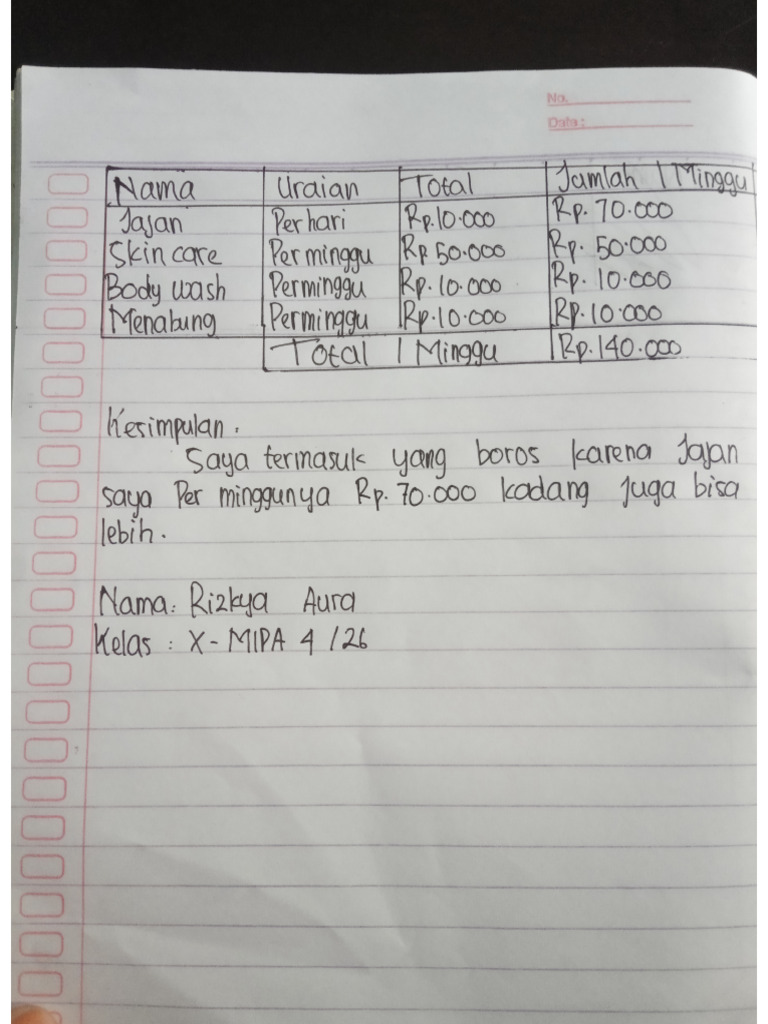 No.
Date :
Nama Uraian Total Jumlah 1 Minggu
Jajan Per hari Rp.10.000 Rp. 70.000
Skin care Per minggu Rp 50.000 Rp. 50.000
Body wash Perminggu Rp. 10.000 Rp. 10.000
Menabung Perminggu Rp. 10.000 Rp. 10.000
Total 1 Minggu Rp. 140.000
Kesimpulan.
Saya termasuk yang boros karena Jajan
saya Per minggunya Rp. 70.000 kadang Juga bisa
lebih.
Nama : Rizkya Aura
Kelas : X - MIPA 4 / 26